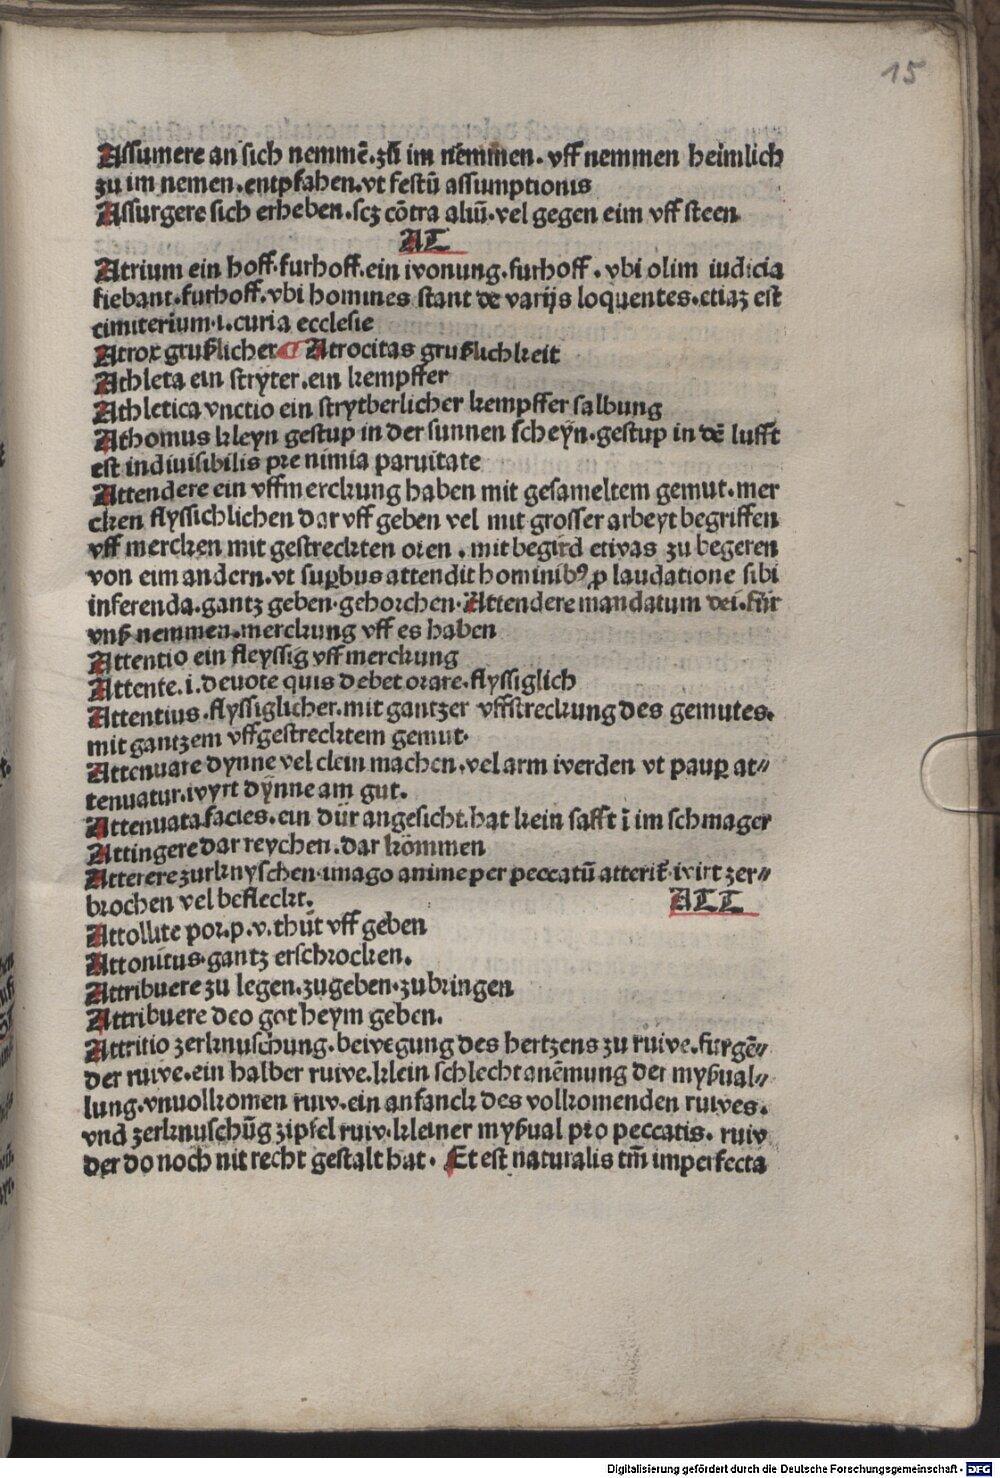 15
Assumere an sich nemmē.zů im nēmmen. vff nemmen heimlich
zu im nemen.entpfahen.vt festū assumptionis
Assurgere sich erheben.scꝫ cōtra aliū.vel gegen eim vff steen
AT
Atrium ein hoff.furhoff.ein wonung.furhoff. vbi olim iudicia
fiebant.furhoff.vbi homines stant de varijs loquentes.etiaꝫ est
cimiterium.i.curia ecclesie
Atrox grußlicher ¶ Atrocitas grußlichkeit
Athleta ein stryter.ein kempffer
Athletica vnctio ein strytberlicher kempffer salbung
Athomus kleyn gestup in der sunnen scheyn.gestup in dē lufft
est indiuisibilis pre nimia paruitate
Attendere ein vffmerckung haben mit gesameltem gemut.mer
cken flyssichlichen dar vff geben vel mit grosser arbeyt begriffen
vff mercken mit gestreckten oren. mit begird etwas zu begeren
von eim andern.vt suꝑbus attendit hominibꝰ ꝓ laudatione sibi
inferenda.gantz geben.gehorchen.Attendere mandatum dei.für
vnß nemmen.merckung vff es haben
Attentio ein fleyssig vff merckung
Attente.i.deuote quis debet orare.flyssiglich
Attentius.flyssiglicher.mit gantzer vffstreckung des gemutes.
mit gantzem vffgestrecktem gemut.
Attenuare dynne vel clein machen.vel arm werden vt pauꝑ at⸗
tenuatur.wyrt dynne am gut.
Attenuata facies.ein dür angesicht.hat kein safft ī im schmager
Attingere dar reychen.dar kömmen
Atterere zurknyschen.imago anime per peccatū atterit̄.wirt zer⸗
brochen vel befleckt.
ATT
Attollite por.p.v.thůt vff geben
Attonitus.gantz erschrocken.
Attribuere zu legen.zugeben.zubringen
Attribuere deo got heym geben.
Attritio zerknuschung.bewegung des hertzens zu ruwe.furgē⸗
der ruwe.ein halber ruwe.klein schlecht anēmung der myßual⸗
lung.vnuolkomen ruw.ein anfanck des volkomenden ruwes.
vnd zerknuschūg zipfel ruw.kleiner myßual pro peccatis. ruw
der do noch nit recht gestalt hat. Et est naturalis tm̄ imperfecta
Digitalisierung gefördert durch die Deutsche Forschungsgemeinschaft - DFG